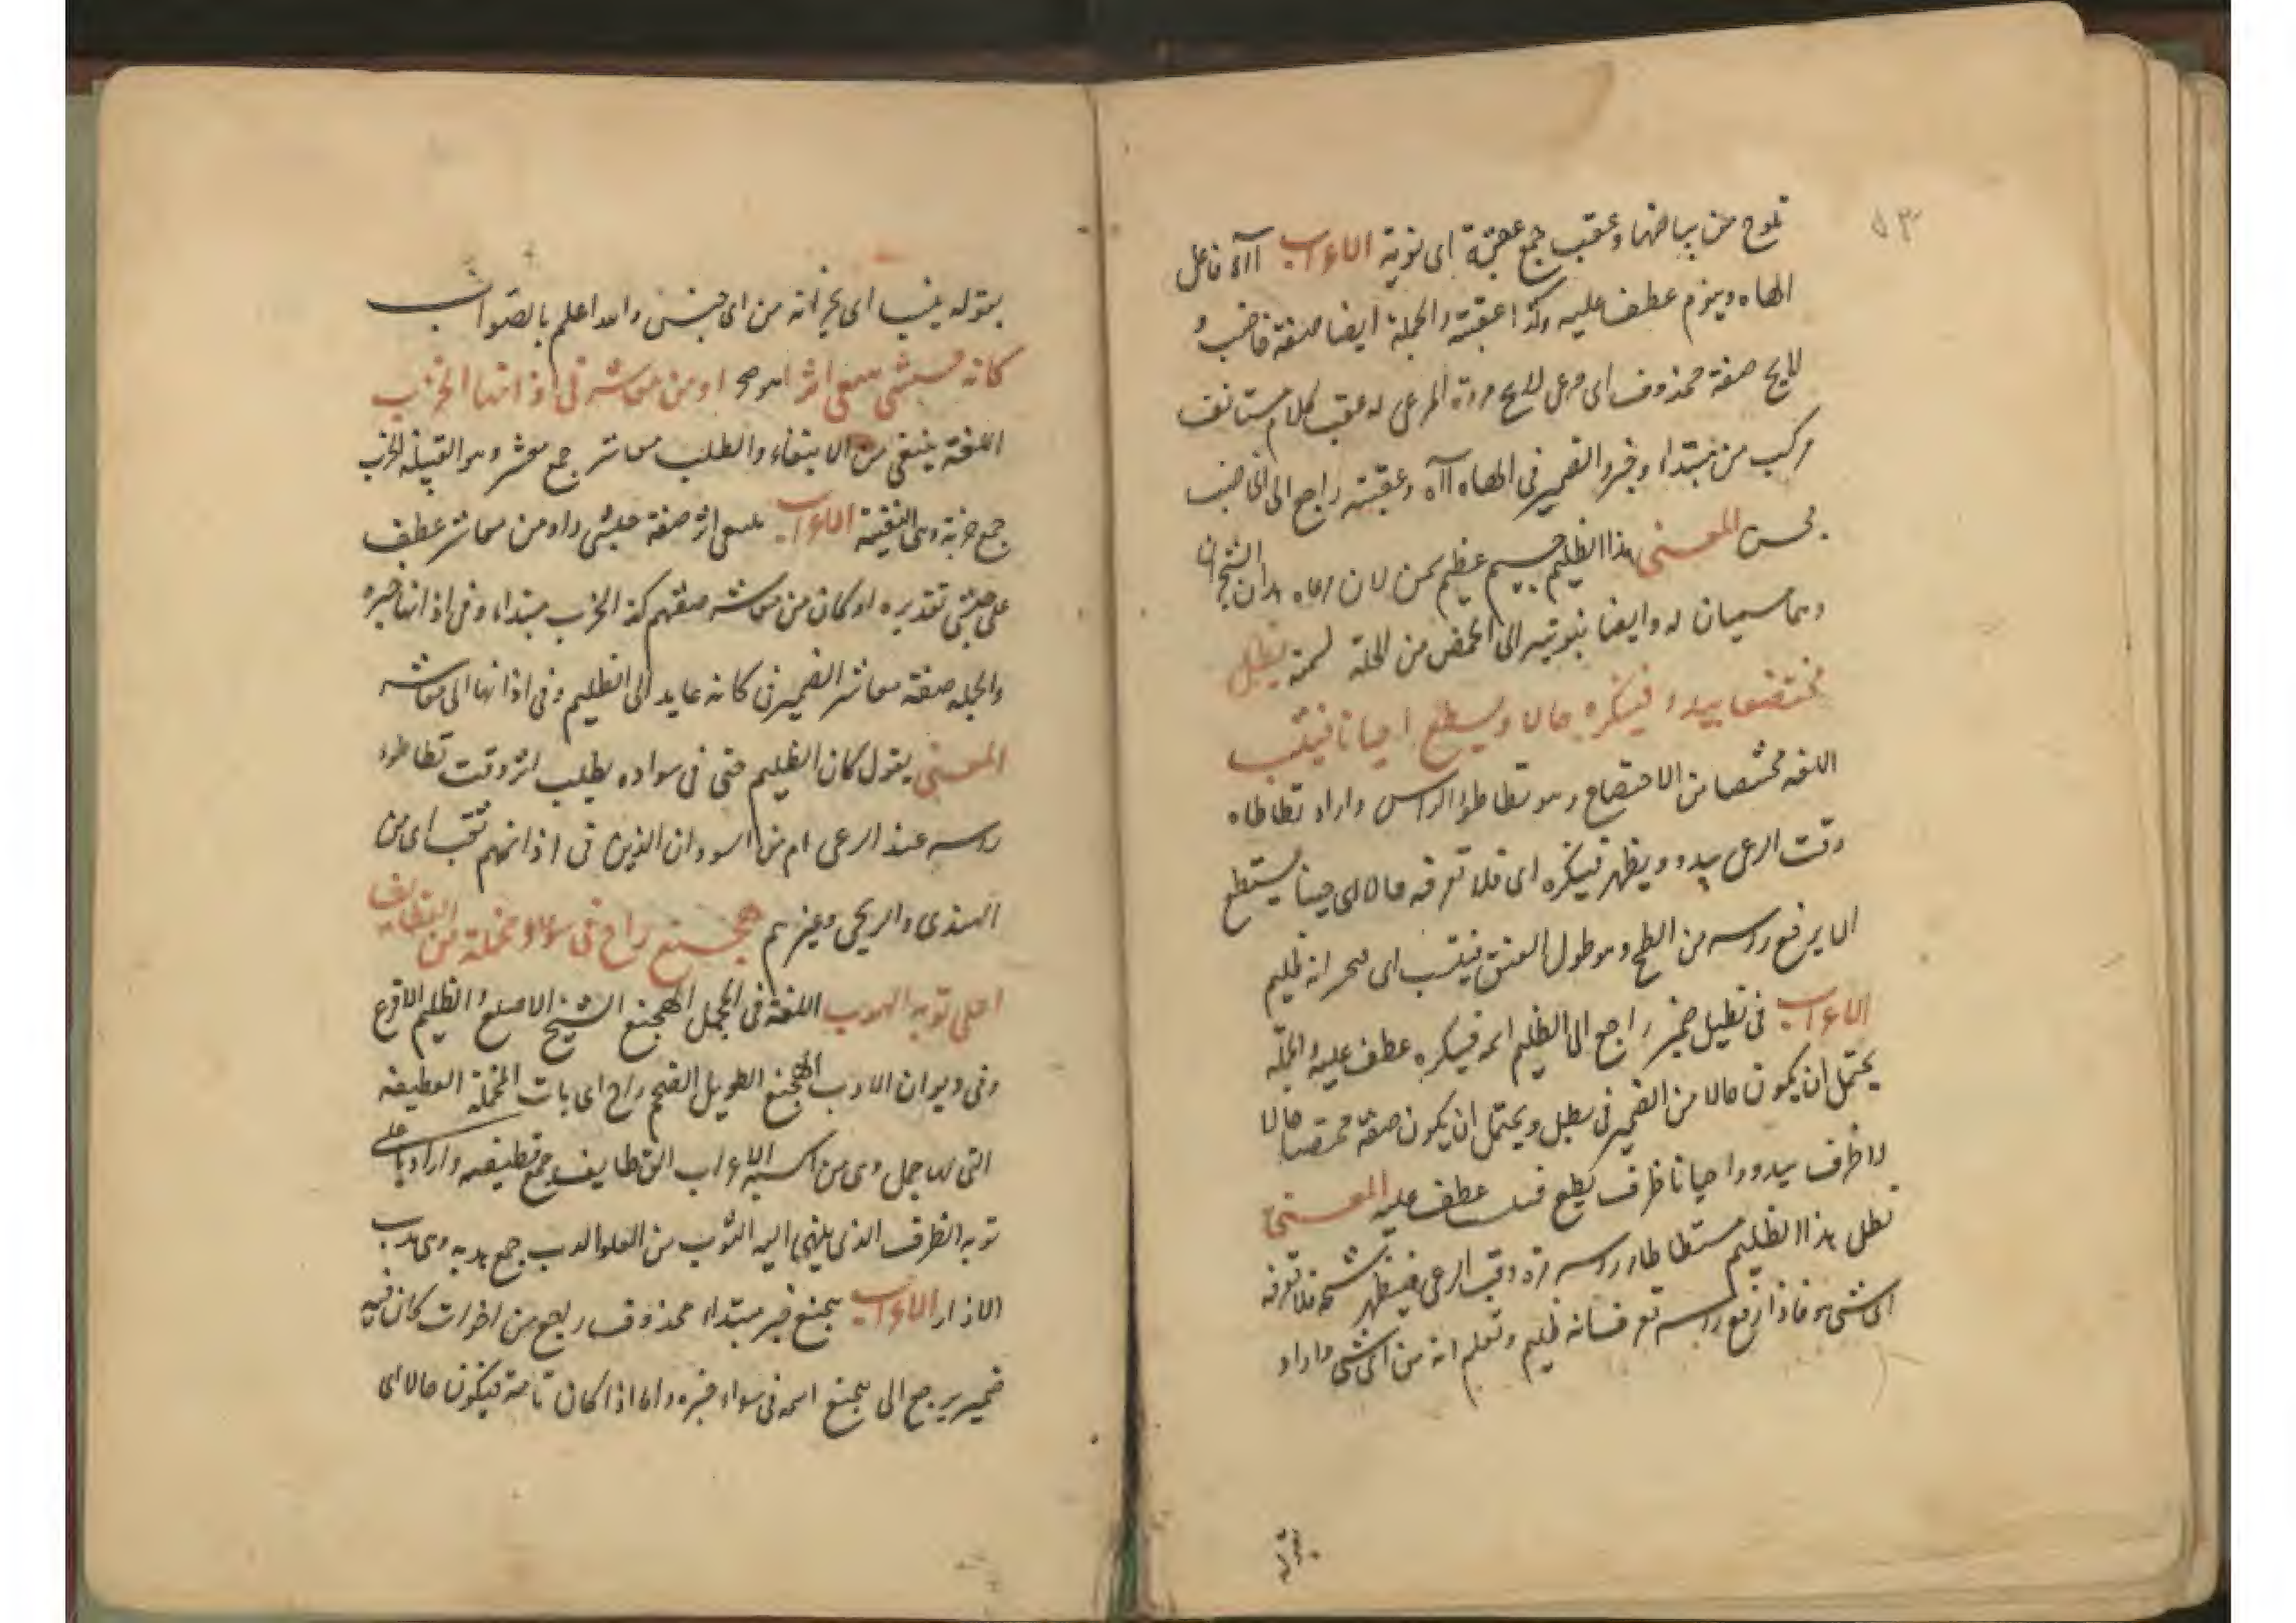 ٥٣
تلوح من بياضها وعقب جمع عقبة اى نوبة الاعراب آآه فاعل
الهاه وينوم عطف عليه وكذا عقبته والجملة ايضا صفة خاضب و
لايح صفة محذوف اى مرعى لايح مروة المرعى له عقب كلام مستانف
مركب من مبتداء وخبر والضمير فى الهاه آآه وعقبته راجع الى الخاضب
المعنى هذا الظليم جسيم عظيم لان رعاه هذان الشجران
وهما سيميان له وايضا نوبته الى الحمض من الخلة لسمنه يظل
مختضعا يبدو فينكره حالا ويسطع احيانا فينتسب
اللغة مختضعا من الاختضاع وهو تطاطؤ الراس واراد تطاطاه
وقت الرعى يبدو ويظهر فينكره اى فلا تعرفه حالا اى حينا يستطع
اى يرفع رأسه من السطع وهو طول العنق فينتسب اى انه ظليم
الاعراب فى يظل ضمير راجع الى الظليم اسمه فينكره عطف عليه والجملة
يحتمل ان يكون حالا من الضمير فى يظل ويحتمل ان يكون صفة مختضعا حالا
ظرف يبدو واحيانا ظرف يسطع عطف عليه المعنى
يظل هذا الظليم متطاطا رأسه وقت الرعى فيظهر فلا تعرفه
اى شى هو فاذا رفع رأسه تعرف انه ظليم وتعلم انه من اى شى واراد
بقوله
بقوله ينتسب اى انه من اى جنس والله اعلم بالصواب
كانه حبشى يبتغى اثرا او من معاشر فى اذانها الخرب
اللغة يبتغى من الابتغاء والطلب معاشر جمع معشر وهو القبيلة الخرب
جمع خربة وهى الثقبة الاعراب يبتغى اثرا صفة حبشى واو من معاشر عطف
على حبشى تقديره او كان من معاشر صفتهم كذا الخرب مبتداء وفى اذانها خبره
والجملة صفة معاشر الضمير فى كانه عايد الى الظليم وفى اذانها الى معاشر
المعنى يقول كان الظليم حبشى فى سواده يطلب اثرا وقت تطاطؤ
رأسه عند الرعى ام من السودان الذين فى اذانهم ثقب اى من
الهندى والزنجى وغيرهم هجنع راح فى سوداء مخملة من القطايف
اعلى ثوبه الهدب اللغة فى المجمل الهجنع الشيخ الاصلع والظليم الاقرع
وفى ديوان الادب الهجنع الطويل الضخم راح اى بات المخملة القطيفة
التى لها خمل وهى من اكسية الاعراب القطايف جمع قطيفة واراد باعلى
ثوبه الطرف الذى ينتهى اليه الثوب من العلو الهدب جمع هدبة وهى هدب
الازار الاعراب هجنع خبر مبتداء محذوف راح من اخوات كان فيه
ضمير يرجع الى هجنع اسمه فى سوداء خبره واما اذا كان تامة فيكون حالا اى